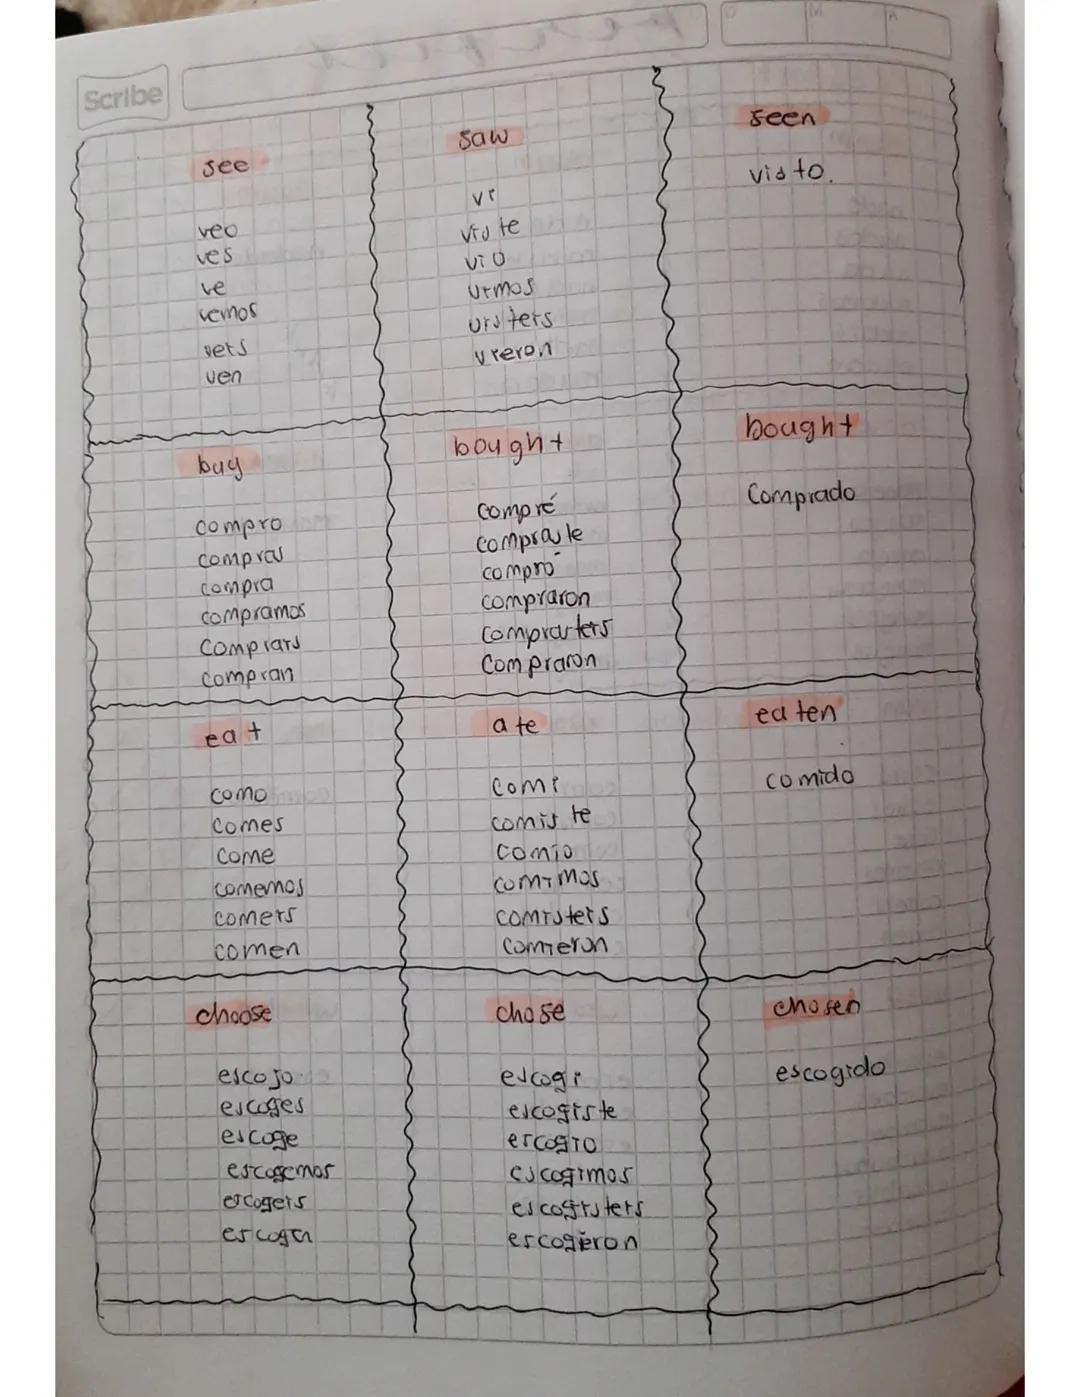 Scribe
see
veo
ves
ve
vemos
veis
ven
saw
vi
viste
vio
vimos
visteis
vieron
seen
visto.
buy
compro
compras
compra
compramos
comprais
compran
bought
compré
compraste
compró
compraron
comprasteis
compraron
bought
comprado
eat
como
comes
come
comemos
comeis
comen
ate
comi
comiste
comio
comimos
comisteis
comieron
eaten
comido
choose
escojo
escoges
escoge
escogemos
escogeis
chose
escogi
escogiste
escogio
escogimos
escogisteis
escogieron
chosen
escogido